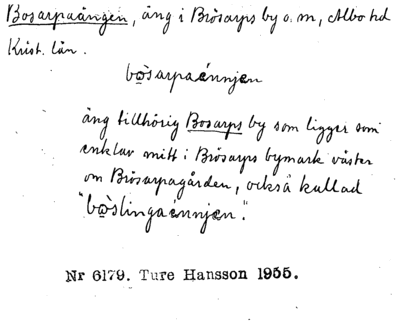 Bosarpaängen, äng i Brösarps by o. m, Albo hd
Krist. län.
bȯ̤sarpaénnjen
äng tillhörig Bosarps by som ligger som
enklav mitt i Brösarps bymark väster
om Brösarpagården, också kallad
"bȯ̤slingaénnjen".
Nr 6179. Ture Hansson 1955.